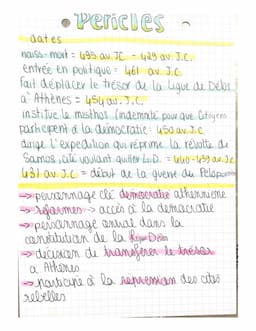 Périclès
dates
naiss-mort = 495 av. J.C. - 429 av. J.C.
entrée en politique = 461 av. J.C.
Fait déplacer le trésor de la Ligue de Délos
à Athènes = 454 av. J.C.
institue le misthos (indemnité pour que citoyens
participent à la démocratie : 450 av J.C
dirige l'expédition qui réprime la révolte de
Samos, cité voulant quitter L.D. = 440-439 av. J.C
431 av. J.C. = début de la guerre du Péloponnèse
→ personnage clé démocratie athénienne
→ réformes → accès à la démocratie
→ personnage central dans la
constitution de la Ligue Délos
→ décision de transférer le trésor
à Athènes
→ participe à la répression des cités
rebelles